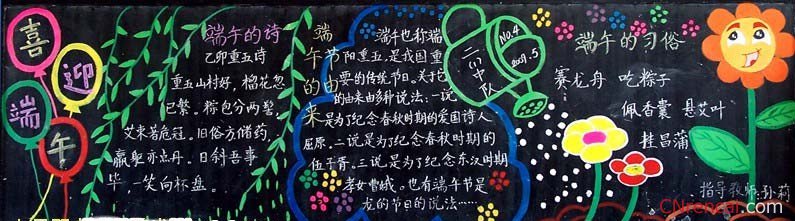 喜迎端午
端午的诗
乙卯重五诗
重五山村好，榴花忽
已繁。粽包分两髻，
艾束著危冠。旧俗方储药，
羸躯亦点丹。日斜吾事
毕，一笑向杯盘。
端午节的由来
端午也称端
阳重五，是我国重
要的传统节日。关于它
的由来由多种说法：一说
是为了纪念春秋时期的爱国诗人
屈原。二说是为了纪念春秋时期的
伍子胥。三说是为了纪念东汉时期
孝女曹娥。也有端午节是
龙的节日的说法……
No.4
2009.5
端午的习俗
赛龙舟 吃粽子
佩香囊 悬艾叶
挂昌蒲
指导教师:孙莉